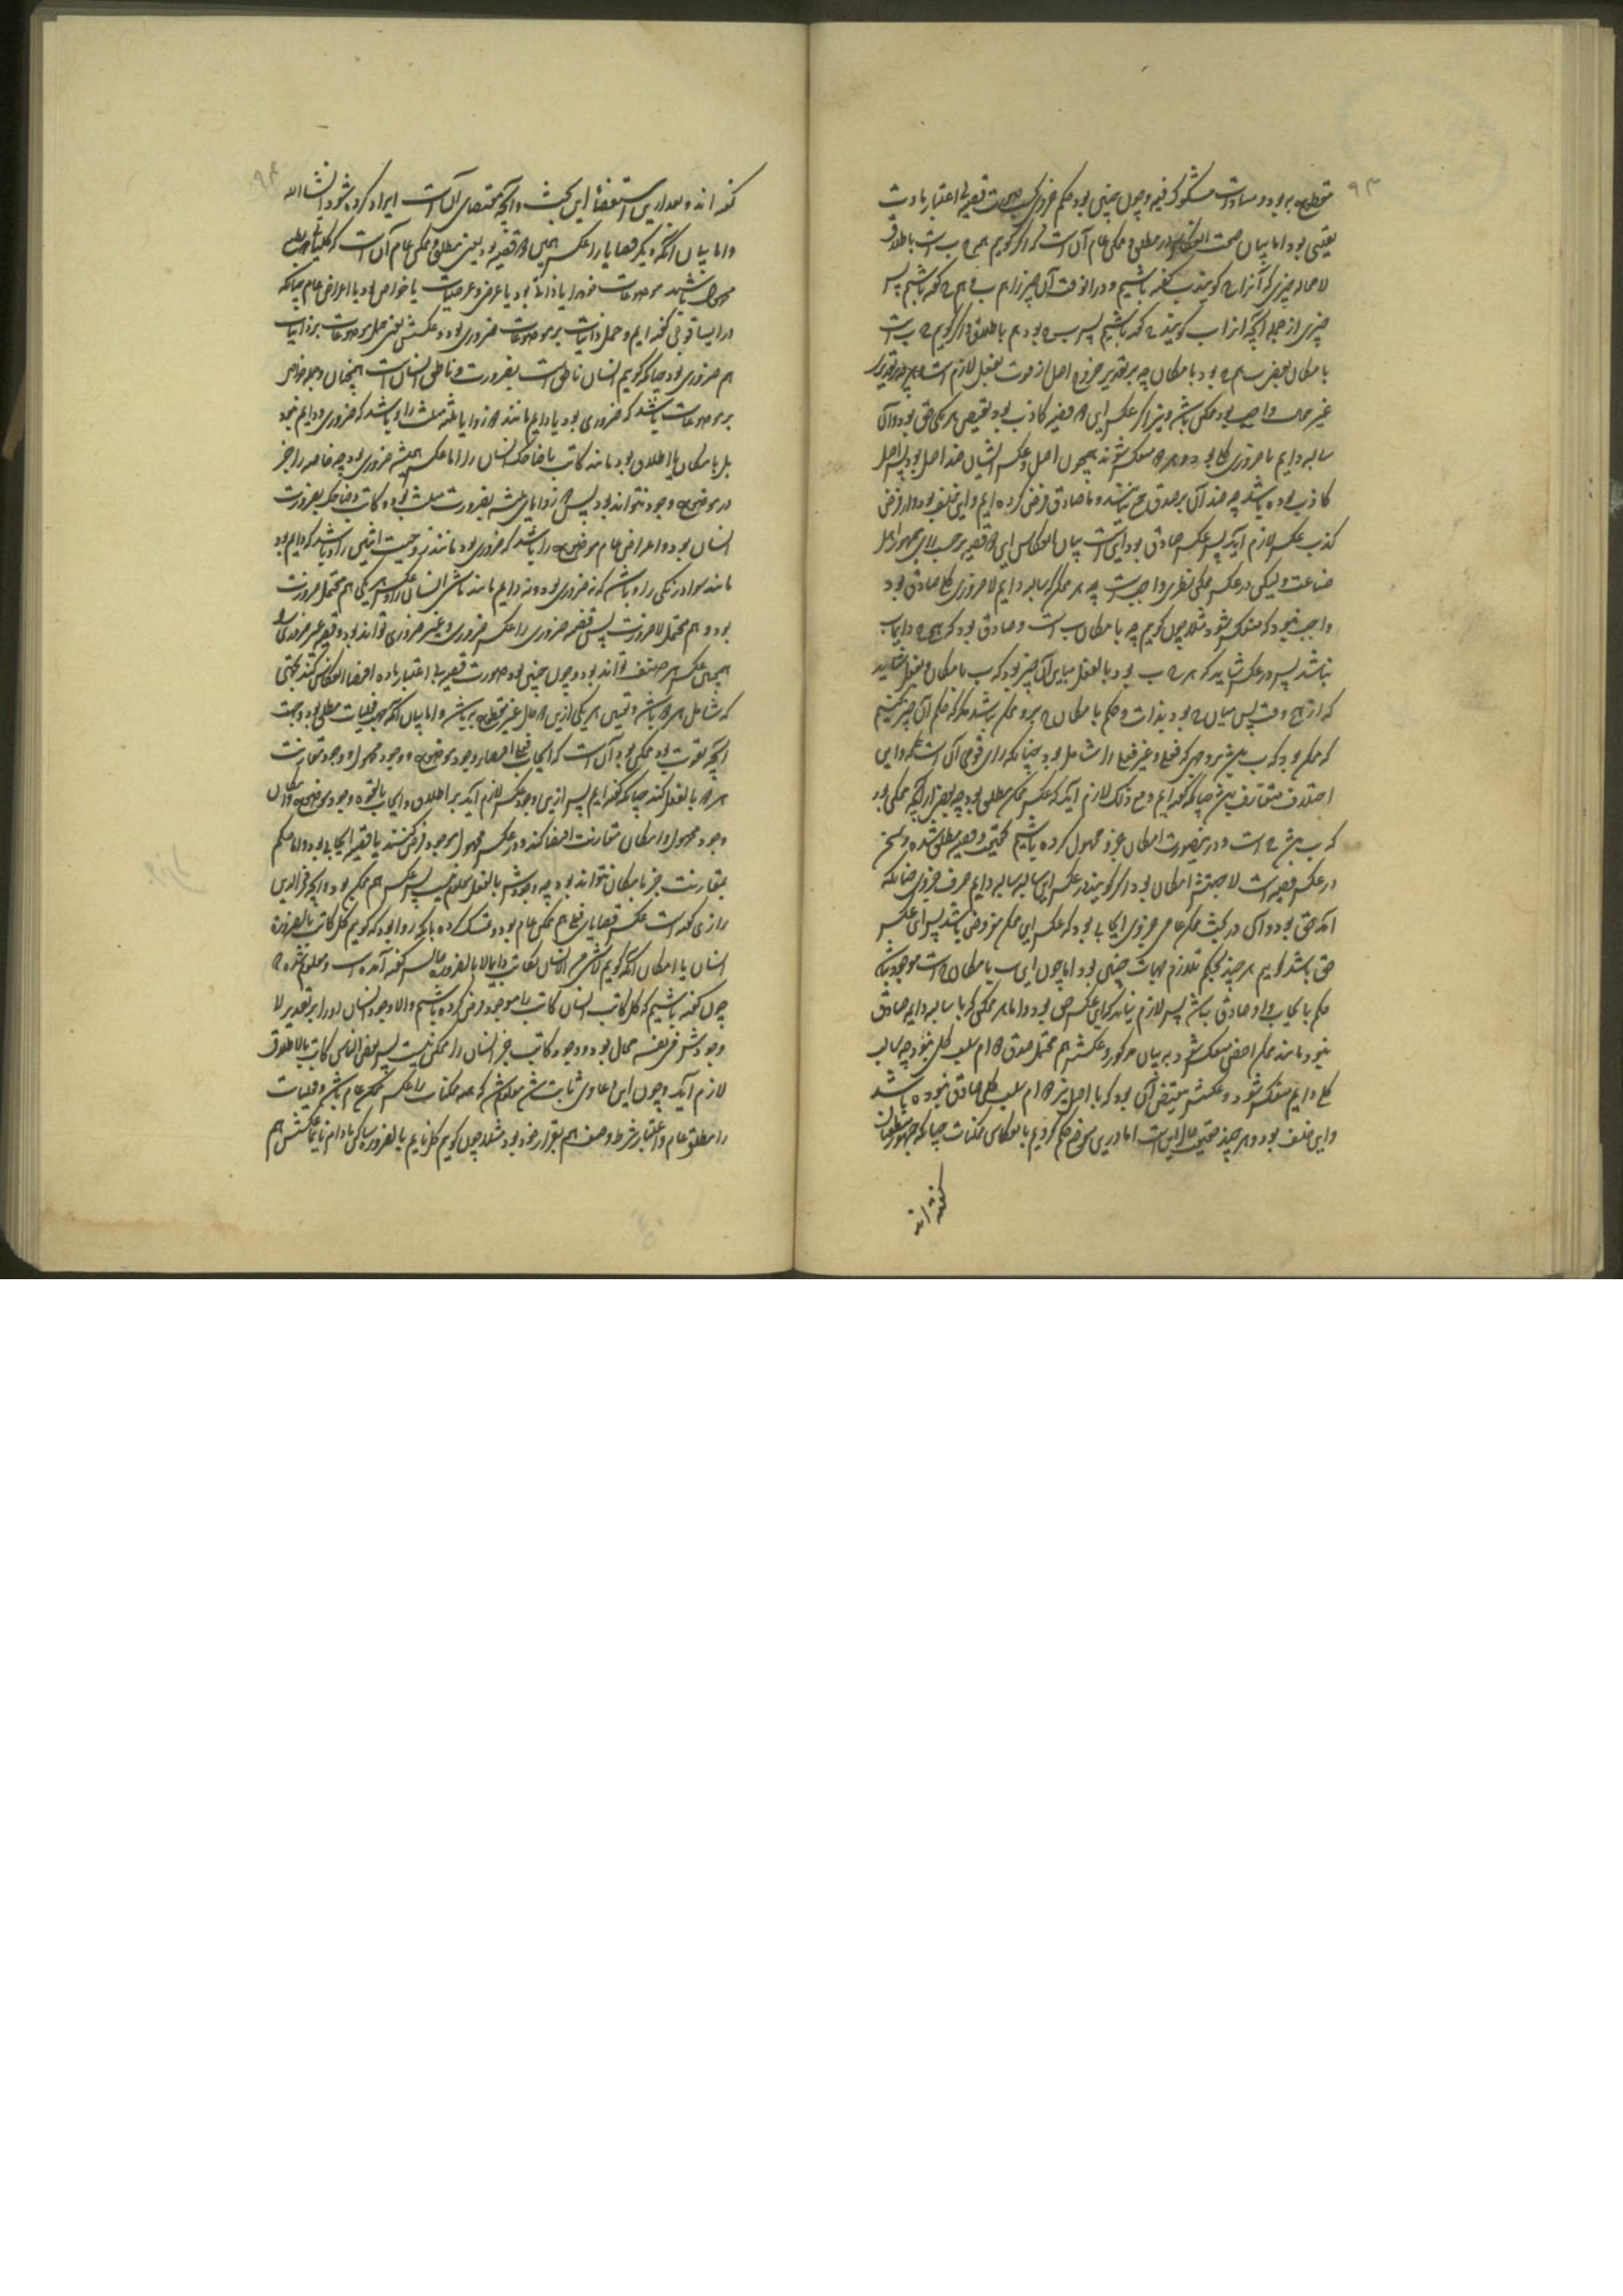 ۹۳
بود و مساوات مشکوک فیه و چون چنین بود حکم جزوی بحسب صورت قضیه بی اعتبار مادت
یقینی بود اما بیان صحت در مطلق و ممکن عام آن است که اگر گوییم ب است باطلاق
لا محاله چیزی که آنرا ج گویند ب گفته باشیم و در آنوقت آن چیز را هم ب و هم ج گفته باشیم پس
چیزی از جمله آنچه آنرا ب گویند ج گفته باشیم پس ب ج بود هم باطلاق و اگر گوییم ج ب است
بامکان بعضی ب هم ج بود بامکان چه بر تقدیر خروج اصل از قوت بفعل لازم است
غیر محال واجب بود ممکن باشد و نیز اگر عکس این قضیه کاذب بود نقیض هر یکی حق بود و آن
سالبه دایم یا ضروری کلی بود و هر دو منعکس شوند همچون اصل و عکس ایشان ضد اصل بود پس اصل
کاذب بوده باشد چه ضد آن بر صدق جمع نباشند و ما صادق فرض کرده ایم و این خلف بود و از فرض
کذب عکس لازم آید پس عکس صادق بود این است بیان انعکاس این قضیه بر حسب رای جمهور اهل
صناعت ولیکن در عکس ممکن نظری واجب است چه هر ممکن که سالبه دایم لاضروری کلی صادق بود
واجب نبود که منعکس شود مثلا چون گوییم ج بامکان ب است و صادق بود که دایما ب
نباشد پس در عکس شاید که هر ج ب بود بالفعل مباین آن چیز بود که ب بامکان
که از وقت پس میان ج بود بذات و حکم بامکان ج برو ممکن نباشد مگر که حکم آن چیز کنیم
که ممکن بود که ب که فعلی و غیر فعلی را شامل بود چنانکه رای قومی آن است که در این
اختلاف چنانکه گفته ایم و مع ذلک لازم آید که عکس ممکن مطلق بود چه بعضی از آنچه ممکن بود
که ب ج است و درینصورت امکان جزو محمول کرده باشیم و قضیه مطلق شده و سخن
در عکس قضیه است لا جهتش امکان بود و اگر گویند در عکس این سالبه سالبه دایم حرف جزوی چنانکه
آمد حق بود و آن در بحث ممکن عام جزوی ایجابی بود که عکس این ممکن مفروض باشد پس این عکس
حق باشد گوییم هر چند بحکم تلازم جهات چنین بود اما چون این ب بامکان ج است موجود نباشد
حکم بایجاب برو صادق نباشد پس لازم نیاید که این عکس حق بود و اما هر ممکنی که با سالبه دایمه صادق
نبود مانند ممکن اخص منعکس شود به بیان مذکور و عکسش هم محتمل صدق سلب کلی نبود چه سالبه
کلی دایم منعکس شود و عکسش مقتضی آن بود که با اصل نیز سلب کلی صادق نبوده باشد
و این خلف بود و هر چند تحقیق حال این است اما درین موضع حکم کردیم بانعکاس ممکنات چنانکه جمهور منطقیان
گفته اند
۹۴
گفته اند و بعد ازین استقصاء این بحث و آنچه مقتضای آن است ایراد کرده شود انشاء الله
و اما بیان آنکه دیگر قضایا را عکس همین دو قضیه بود یعنی مطلق و ممکن عام آن است که کلیات
محمول باشند موضوعات خود را یا ذاتی بود یا عرضی و عرضیات یا خواص بود یا اعراض عام چنانکه
در ایساغوجی گفته ایم و حمل ذاتیات بر موضوعات ضروری بود و عکسش یعنی حمل موضوعات بر ذاتیات
هم ضروری بود چنانکه گوییم انسان ناطق است بضرورت و ناطق انسان است همچنان و جمله خواص
بر موضوعات باشد که ضروری بود یا دایم مانند زوایا ثلثه مثلث را و باشد که ضروری و دایم نبود
بل بامکان یا اطلاق بود مانند کاتب یا ضاحک انسان را اما عکس همیشه ضروری بود چه خاصه را جز
در موضوع وجود نتواند بود پس زوایای ثلثه بضرورت مثلث بود و کاتب و ضاحک بضرورت
انسان بود و اعراض عام موضوع را باشد که ضروری بود مانند زوجیت اثنین را و باشد که دایم بود
مانند سواد زنگی را و باشد که نه ضروری بود و نه دایم مانند ماشی انسان را و عکس هر یکی هم محتمل ضرورت
بود و هم محتمل لاضرورت پس قضیه ضروری را عکس ضروری و غیر ضروری تواند بود و قضیه غیر ضروری را
همچنین عکس هر صنف تواند بود و چون چنین بود صورت قضیه بی اعتبار ماده اقتضاء انعکاس کند بجهتی
که شامل هر دو باشد و تعیین هر یکی ازین دو حال غیر مقطوع به باشد و اما بیان آنکه جهت فعلیات مطلق بود و جهت
آنچه بقوت بود ممکن بود آن است که ایجاب فعلی اقتضاء وجود موضوع و وجود محمول و وجود مقارنت
هر دو بالفعل کند چنانکه گفته ایم پس ازین وجود عکس لازم آید بر اطلاق و ایجاب بالقوه وجود موضوع و امکان
وجود محمول و امکان مقارنت اقتضا کند و در عکس محمول موجود فرض کنند یا قضیه ایجابی بود و اما حکم
بمقارنت جز بامکان نتواند بود چه وجودش بالفعل معلوم نیست پس عکس هم ممکن بود و آنچه فخر الدین
رازی گفته است عکس قضایای فعلی هم ممکن عام بود و تمسک کرده بآنکه روا بود که گوییم کل کاتب بالضرورة
انسان یا امکان آنکه گوییم لا شی من الانسان بکاتب دایما لا بالضرورة مثالیست گفته آمده است و معلوم شده ج
چون گفته باشیم که کل کاتب انسان کاتب را موجود فرض کرده باشیم والا وجود انسان او را بر تقدیر لا
وجودش فی نفسه محال بود و وجود کاتب جز انسان را ممکن نیست پس بعض الناس کاتب بالاطلاق
لازم آید و چون این دعاوی ثابت شد معلوم شد که همه ممکنات را عکس ممکن عام باشد و فعلیات
را مطلق عام و اعتبار شرط وصف هم بقرار خود بود مثلا چون گوییم کل نایم بالضرورة ساکن مادام نایما عکسش هم